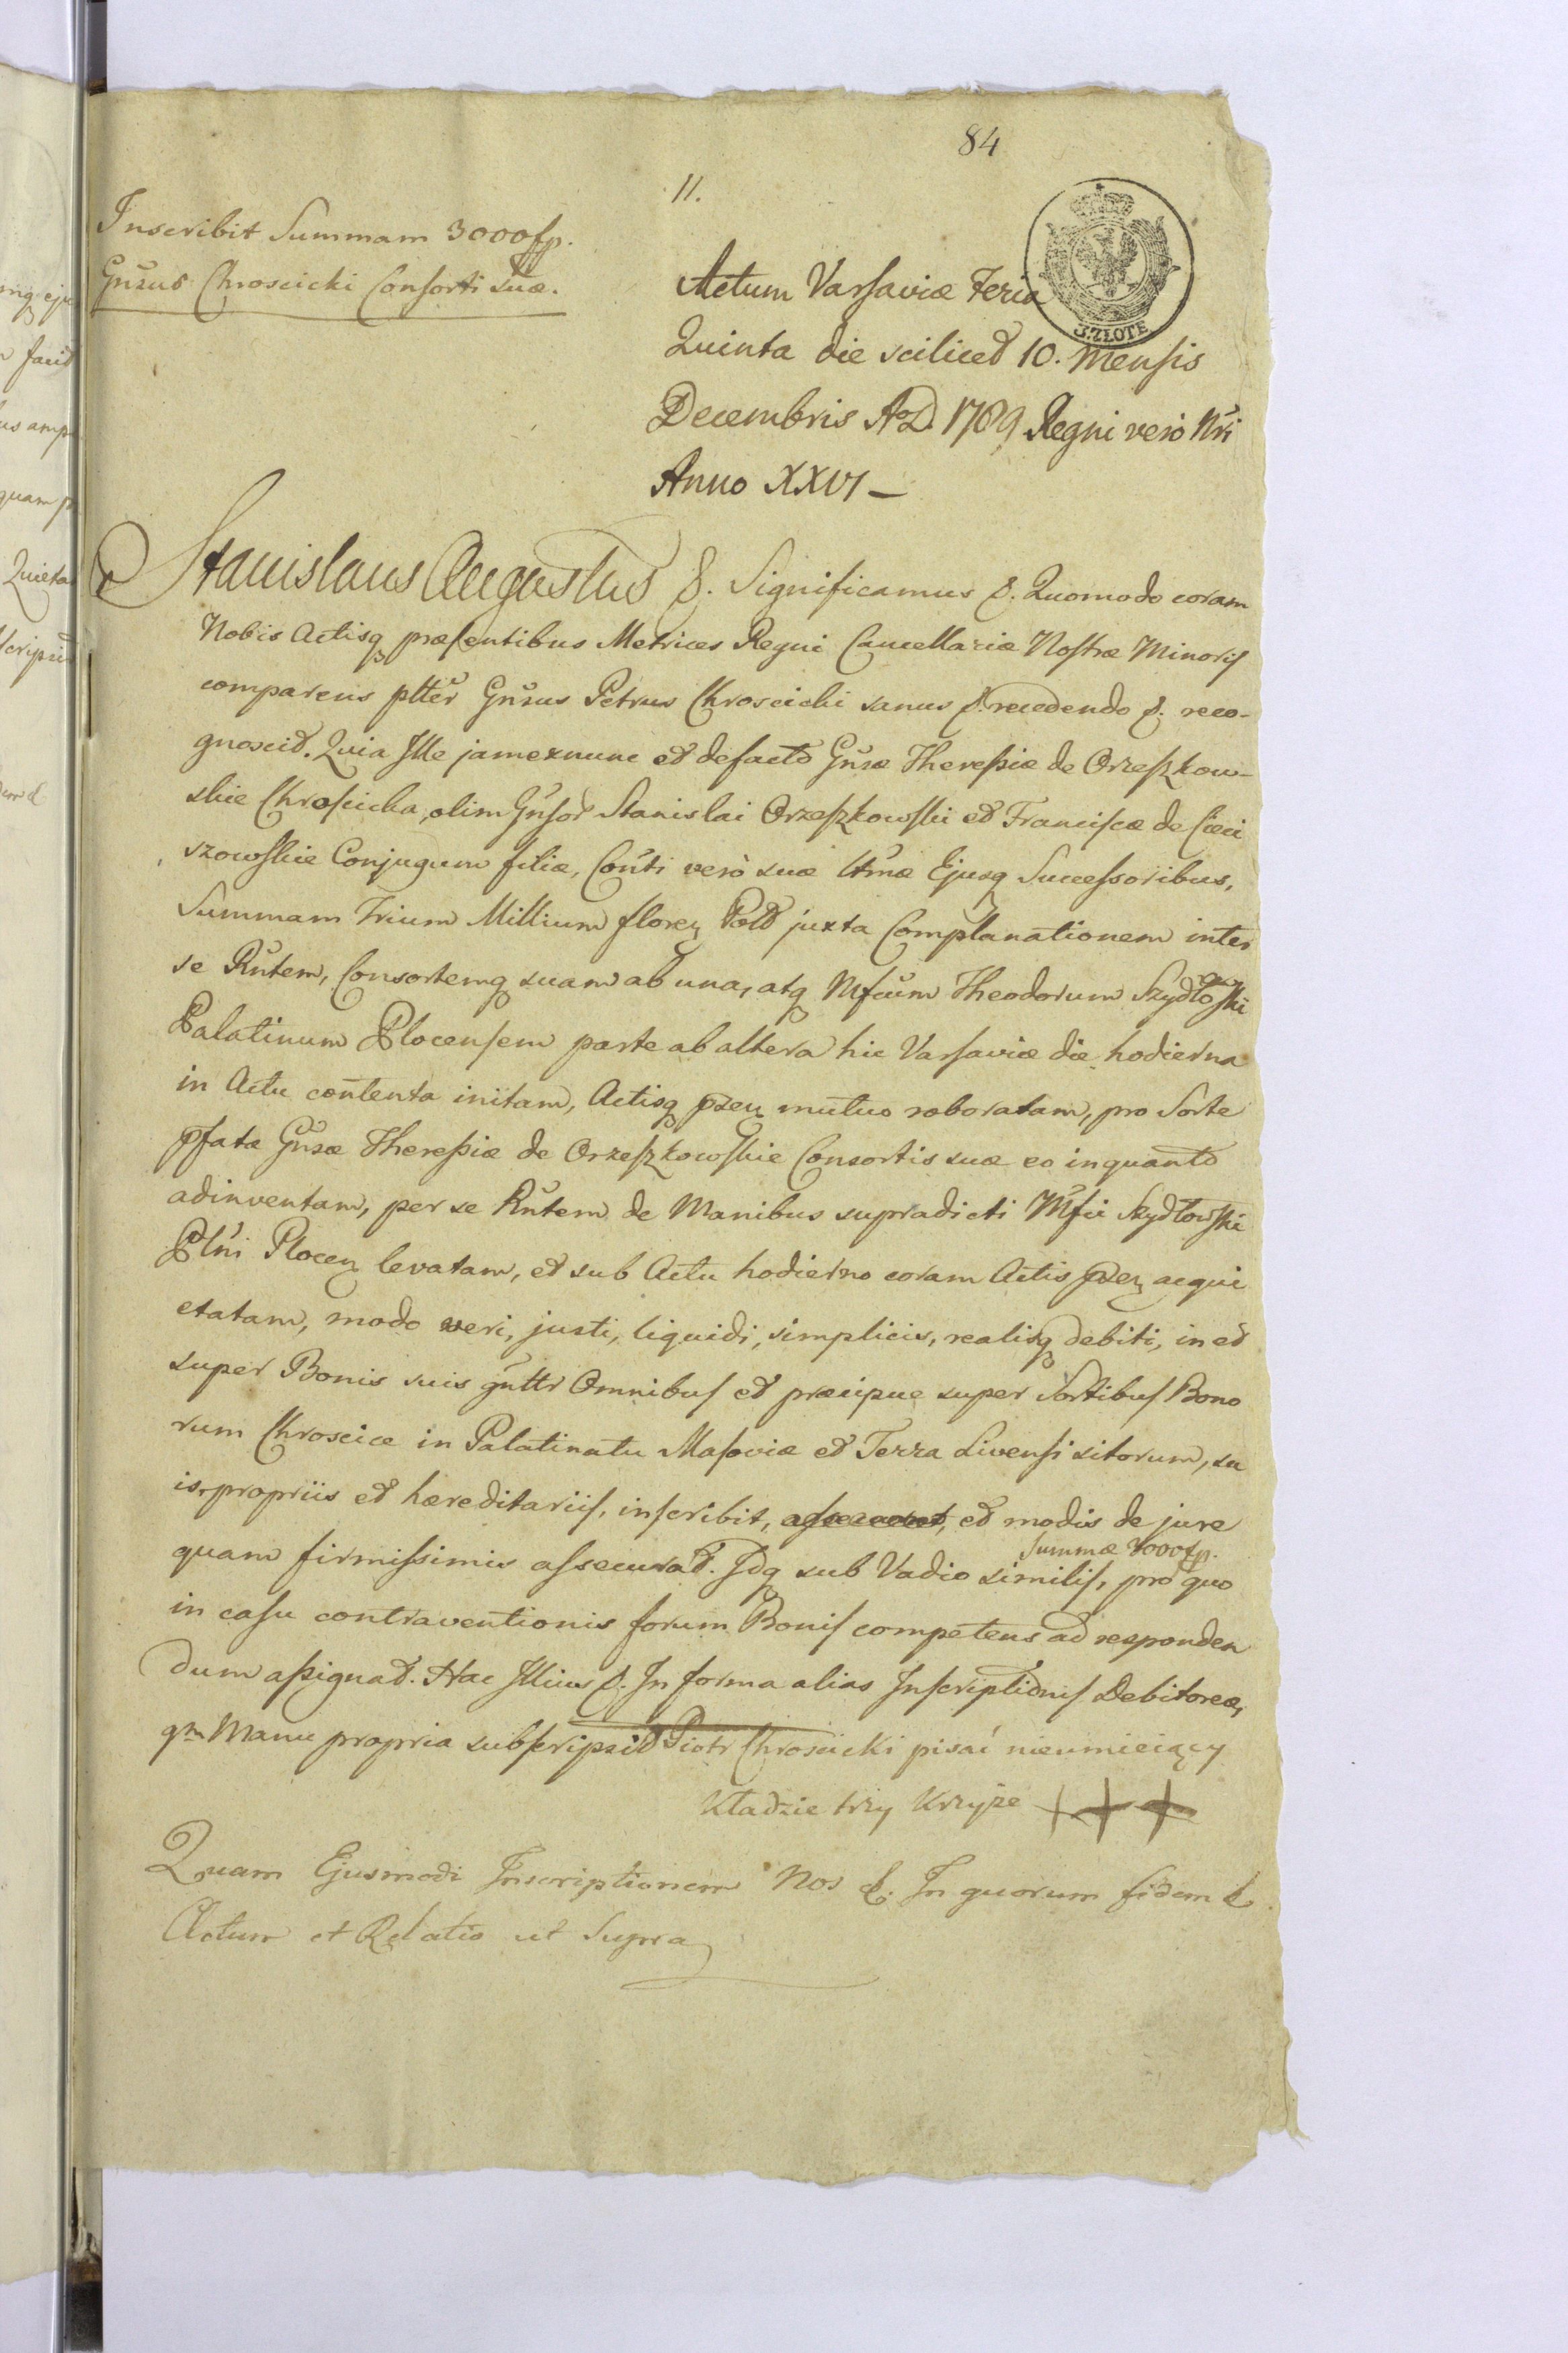 84
11.
Inscribit Summam 3000 fp.
Gnrus Chroscicki Consorti suæ.
Actum Varsaviæ Feria
3. ZŁOTE
Quinta die scilicet 10. Mensis
Decembris A.D. 1789 Regni verò Nri
Anno XXVI –
Stanislaus Augustus &. Significamus &. Quomodo coram
Nobis Actisq præsentibus Metrices Regni Cancellariæ Nostræ Minoris
comparens plter Gnrus Petrus Chroscicki sanus &. recedendo &. reco-
gnoscit. Quia Ille jamexnunc et defacto Gnræ Theresiæ de Orzeszkow-
skie Chroscicka, olim Gnror Stanislai Orzeszkowski et Franciscæ de Cieci
szowskie Conjugum filiæ, Conti verò suæ Chmæ Ejusq Successoribus,
Summam Trium Millium floren Pol juxta Complanationem inter
se Rntem, Consortemq suam ab una, atq Mfcum Theodorum Szydłowski
Palatinum Plocensem parte ab altera hic Varsaviæ die hodierna
in Actu contenta initam, Actisq pñen mutuo roboratam, pro Sorte
pfatæ Gnræ Theresiæ de Orzeszkowskie Consortis suæ eo inquanto
adinventam, per se Rntem de Manibus supradicti Mfci Szydłowski
Pltni Plocen levatam, et sub Actu hodierno coram Actis pñen acqui
etatam, modo veri, justi, liquidi, simplicis, realisq debiti, in et
super Bonis suis gnttr Omnibus et præcipue super Sortibus Bono
rum Chroscice in Palatinatu Masoviæ et Terra Livensi sitorum, su
is propriis et hæreditariis, inscribit, et modis de jure
quam firmissimis assecurat. Idq sub Vadio similis, Summæ 3000 fp. pro quo
in casu contraventionis forum Bonis competens ad responden
dum assignat. Hac Illius &. In forma alias Inscriptionis Debitoreæ,
qm Manu propria subscripsit Piotr Chroscicki pisać nieumieiący
Kładzie trzy Krzyże + + +
Quam Ejusmodi Inscriptionem Nos &. In quorum fidem &
Actum et Relatio ut Supra